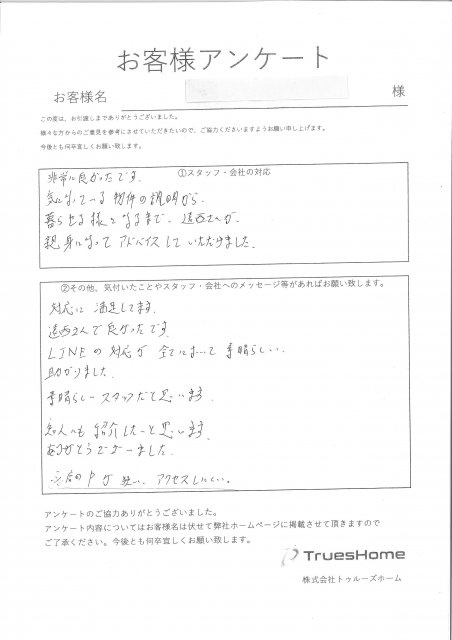 お客様アンケート
お客様名
様
この度は、お引渡しまでありがとうございました。
様々な方からのご意見を参考にさせていただきたいので、ご協力くださいますようお願い申し上げます。
今後とも何卒宜しくお願い致します。
①スタッフ・会社の対応
非常に良かったです。
気になっている物件の説明から、
暮らせる様になるまで、遠西さんが、
親身になってアドバイスしていただけました。
②その他、気付いたことやスタッフ・会社へのメッセージ等があればお願い致します。
対応に満足してます。
遠西さんで良かったです。
LINEの対応が全てにおいて素晴らしい。
助かりました。
素晴らしいスタッフだと思います。
知人にも紹介したいと思います。
ありがとうございました。
お店のPが狭い、アクセスしにくい。
アンケートのご協力ありがとうございました。
アンケート内容についてはお客様名は伏せて弊社ホームページに掲載させて頂きますので
ご了承ください。今後とも何卒宜しくお願い致します。
TruesHome
株式会社トゥルーズホーム